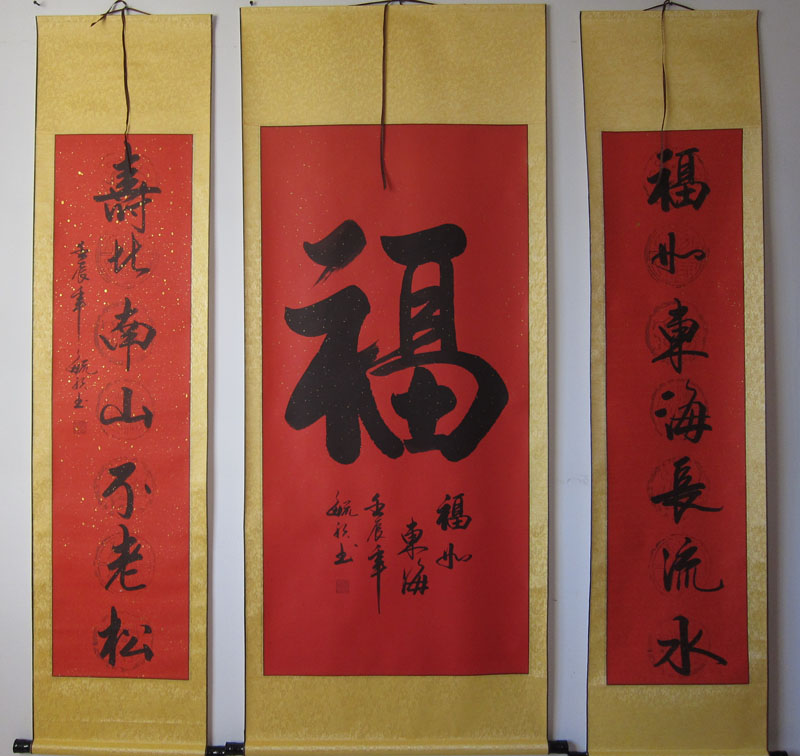 福如東海長流水
福
福如
東海
壬辰年
毓秋书
壽比南山不老松
壬辰年毓秋书